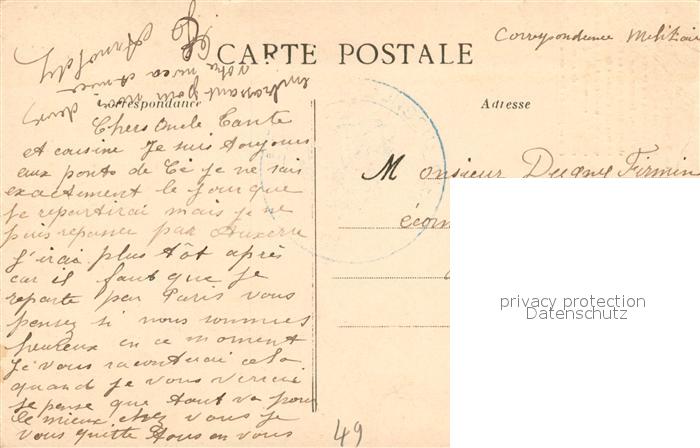 Correspondance Militaire
CARTE POSTALE
Correspondance
Adresse
Chers Oncle Tante
et cousine Je suis toujours
aux ponts de Cé je ne sais
exactement le jour que
je repartirai mais je ne
puis repasser par Auxerre
j'irai plus tôt après
car il faut que je
reparte par Paris vous
pensez si nous sommes
heureux en ce moment
Je vous raconterai cela
quand je vous verrai
je pense que tout va pour
le mieux chez vous je
vous quitte tous en vous
embrassant pour nous
votre neveu
Monsieur Firmin
privacy protection
Datenschutz
49